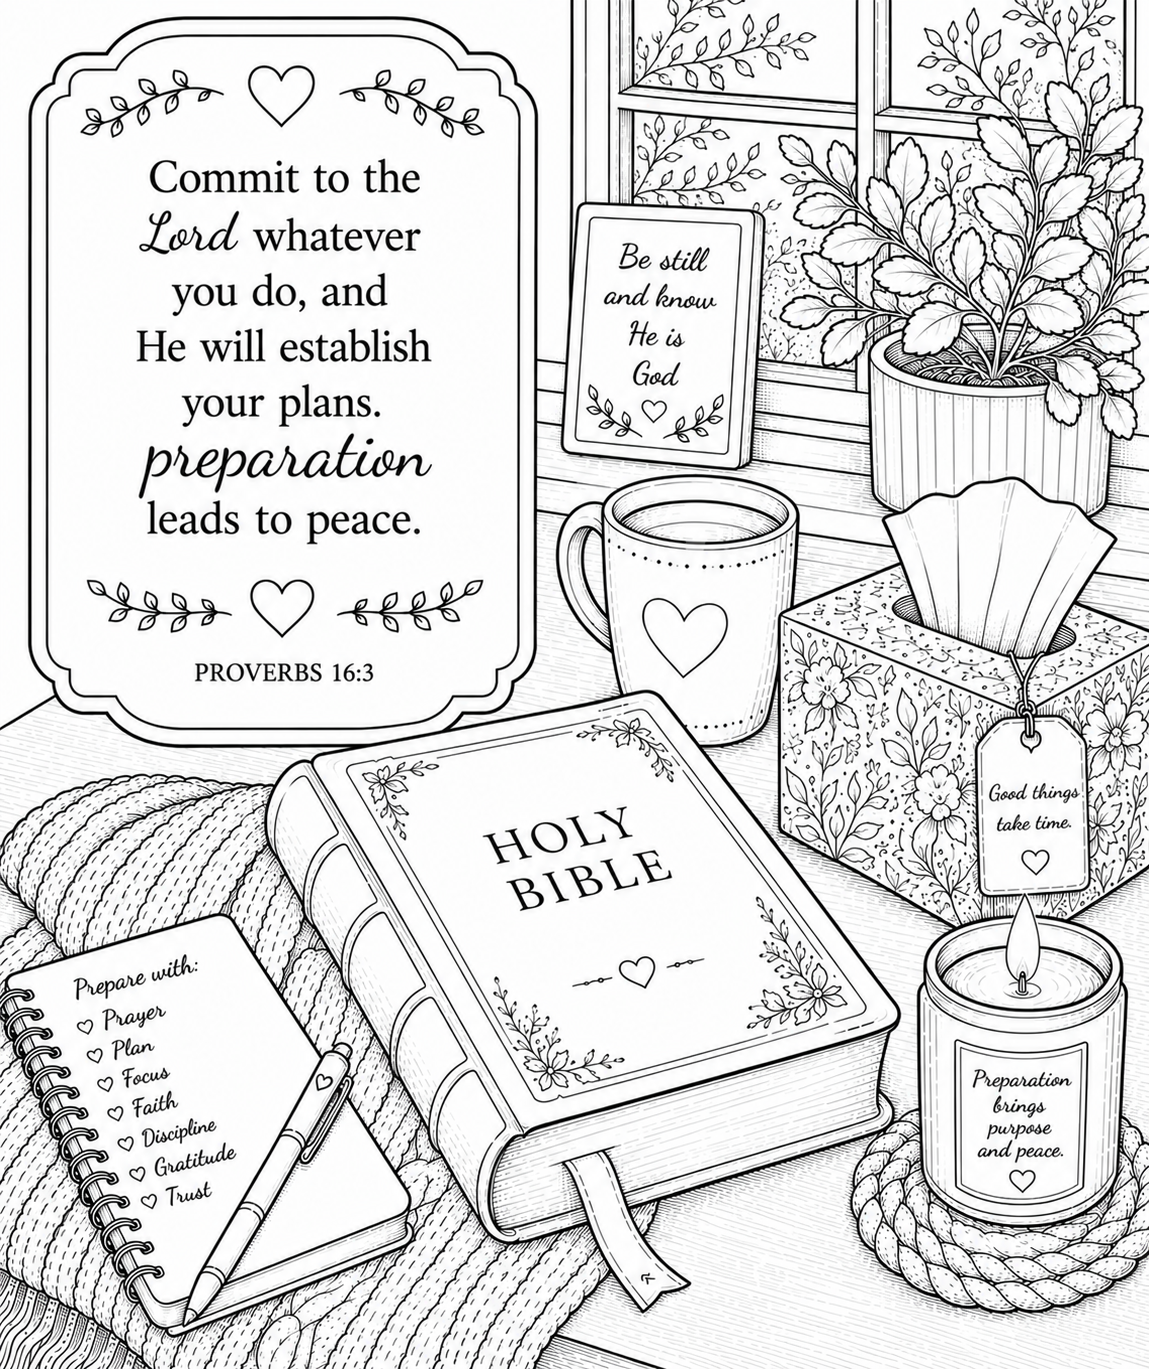 Commit to the
Lord whatever
you do, and
He will establish
your plans.
preparation
leads to peace.
PROVERBS 16:3
Be still
and know
He is
God
Good things
take time.
HOLY
BIBLE
Prepare with:
Prayer
Plan
Focus
Faith
Discipline
Gratitude
Trust
Preparation
brings
purpose
and peace.